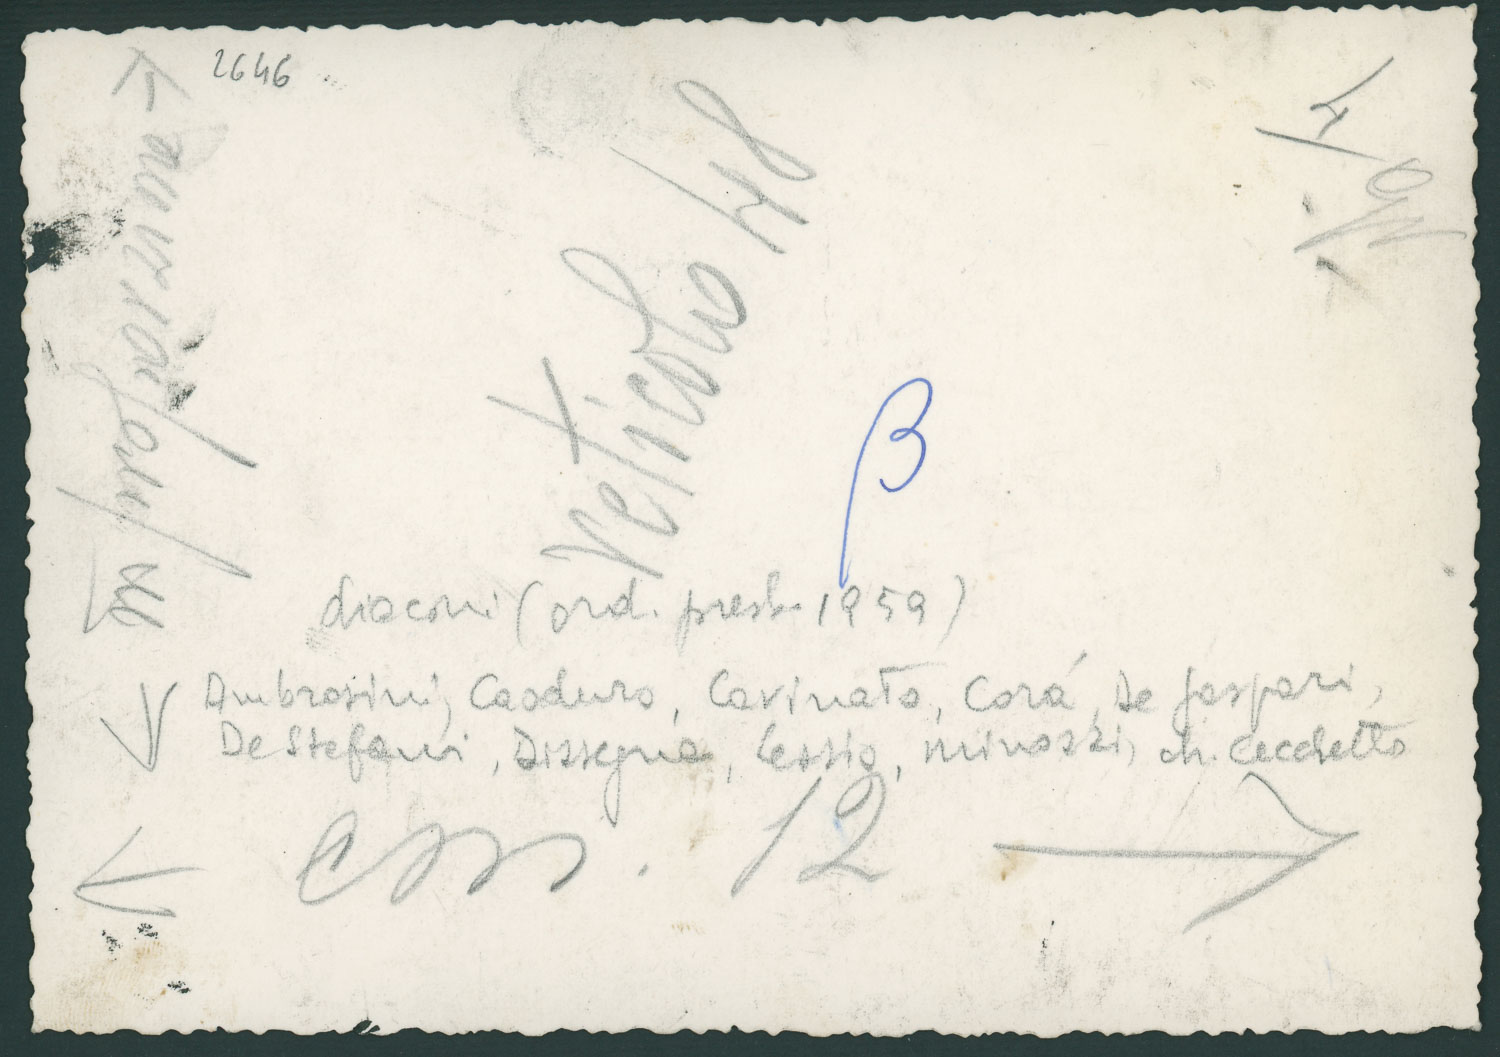 2646
retícolo 48
β
diaconi (ord. presb. 1959)
Ambrosini, Caoduro, Cavinato, Corá, De Gaspari,
De Stefani, Dissegna, Lessio, Minozzi, ch. Cecchetto
cm. 12